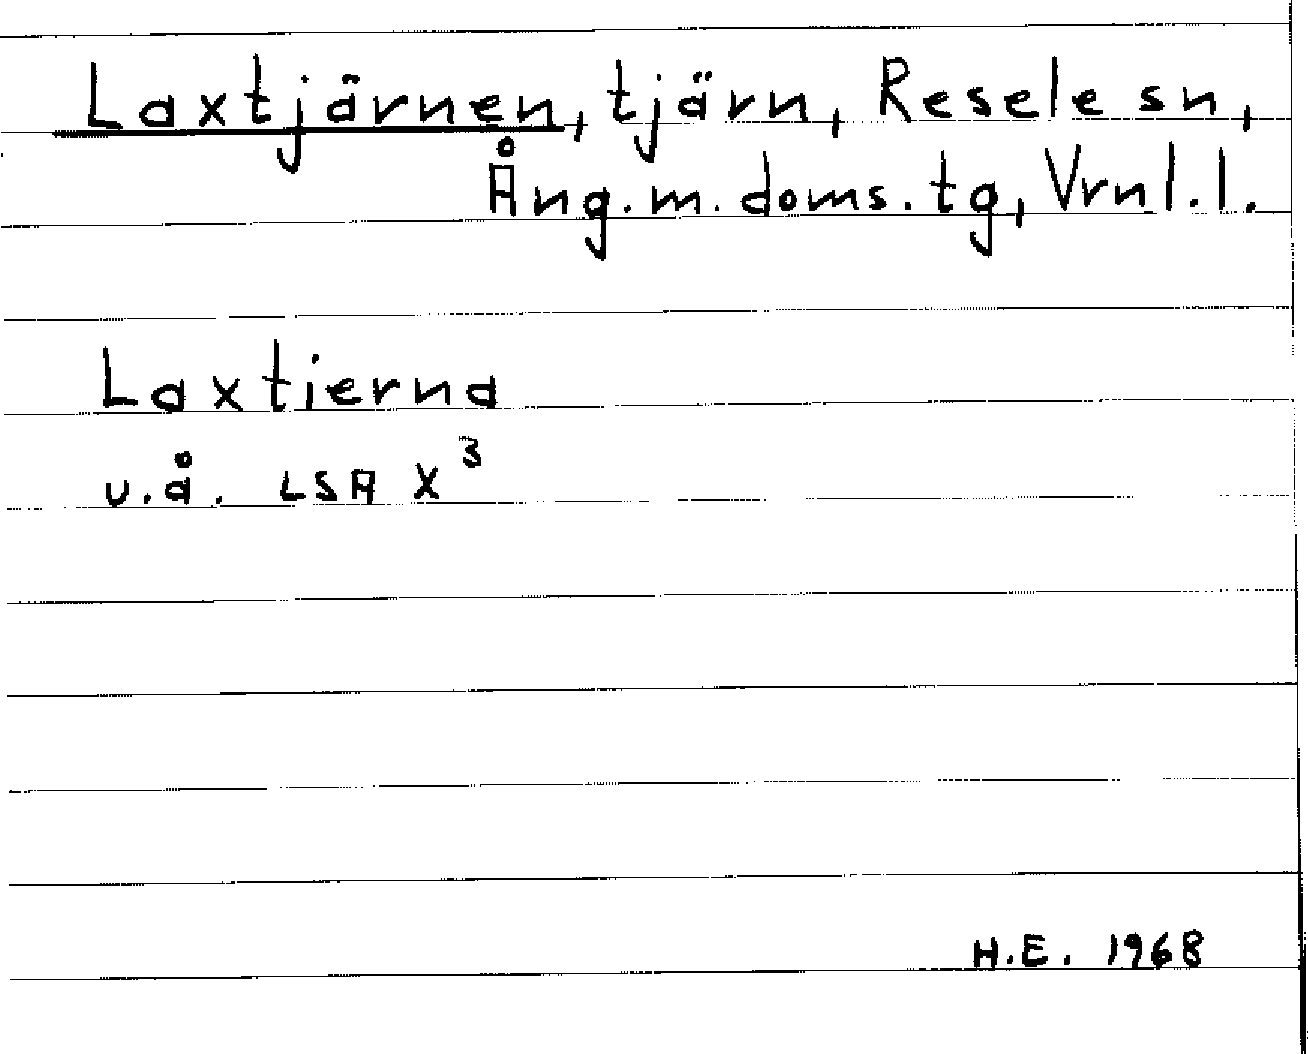 Laxtjärnen, tjärn, Resele sn,
Ång. m. doms. tg, Vrnl. l.
Laxtierna
u.å. LSA X³
H.E. 1968